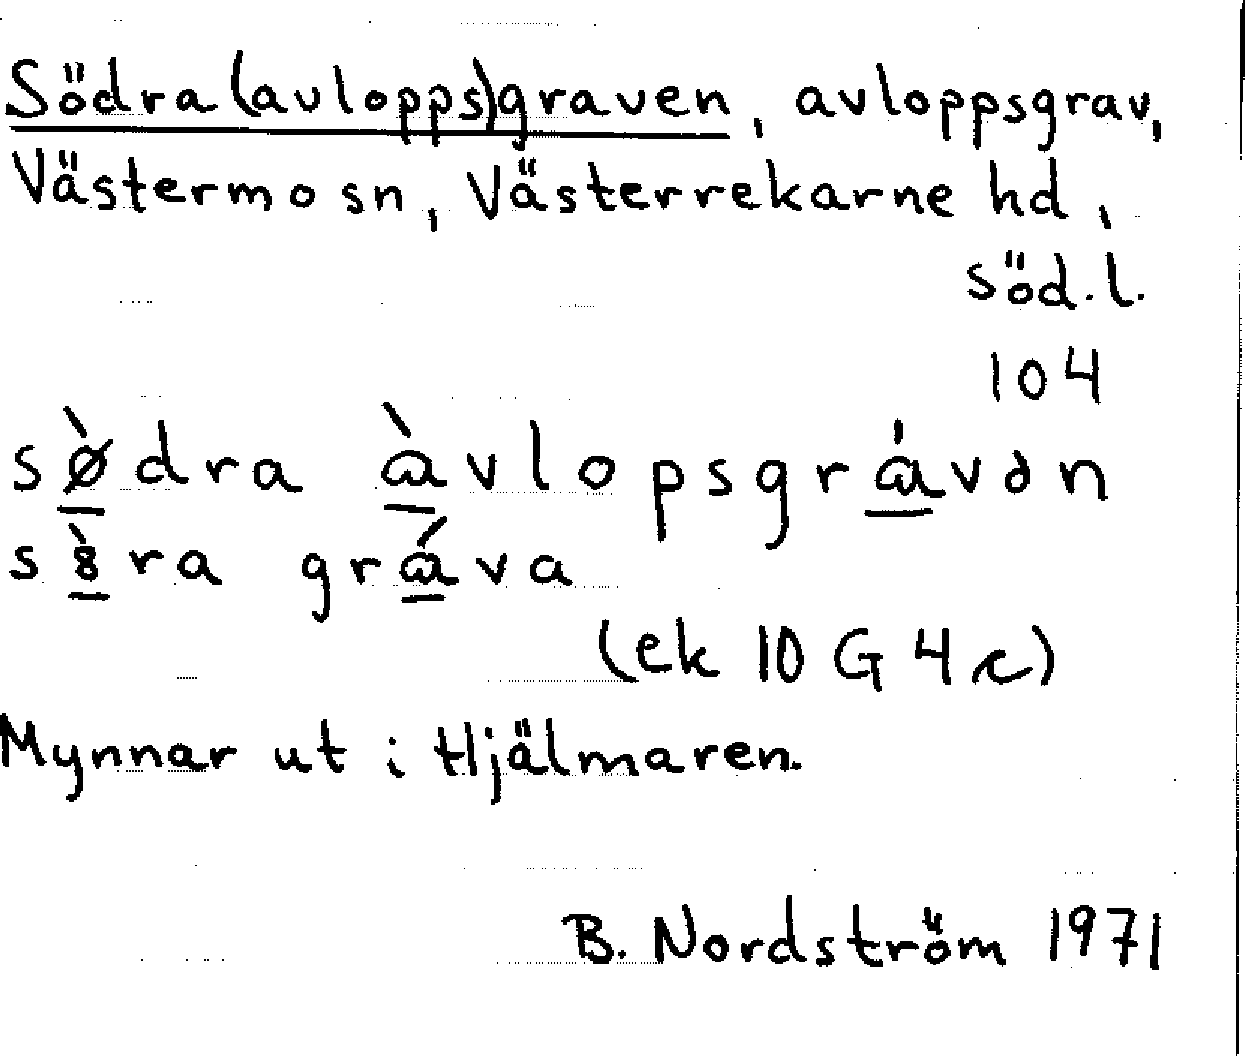 Södra (avlopps)graven, avloppsgrav,
Västermo sn, Västerrekarne hd,
söd.l.
104
sø̀dra àvlopsgrávən
s8̀ra gráva
(ek 10 G 4 c)
Mynnar ut i Hjälmaren.
B. Nordström 1971